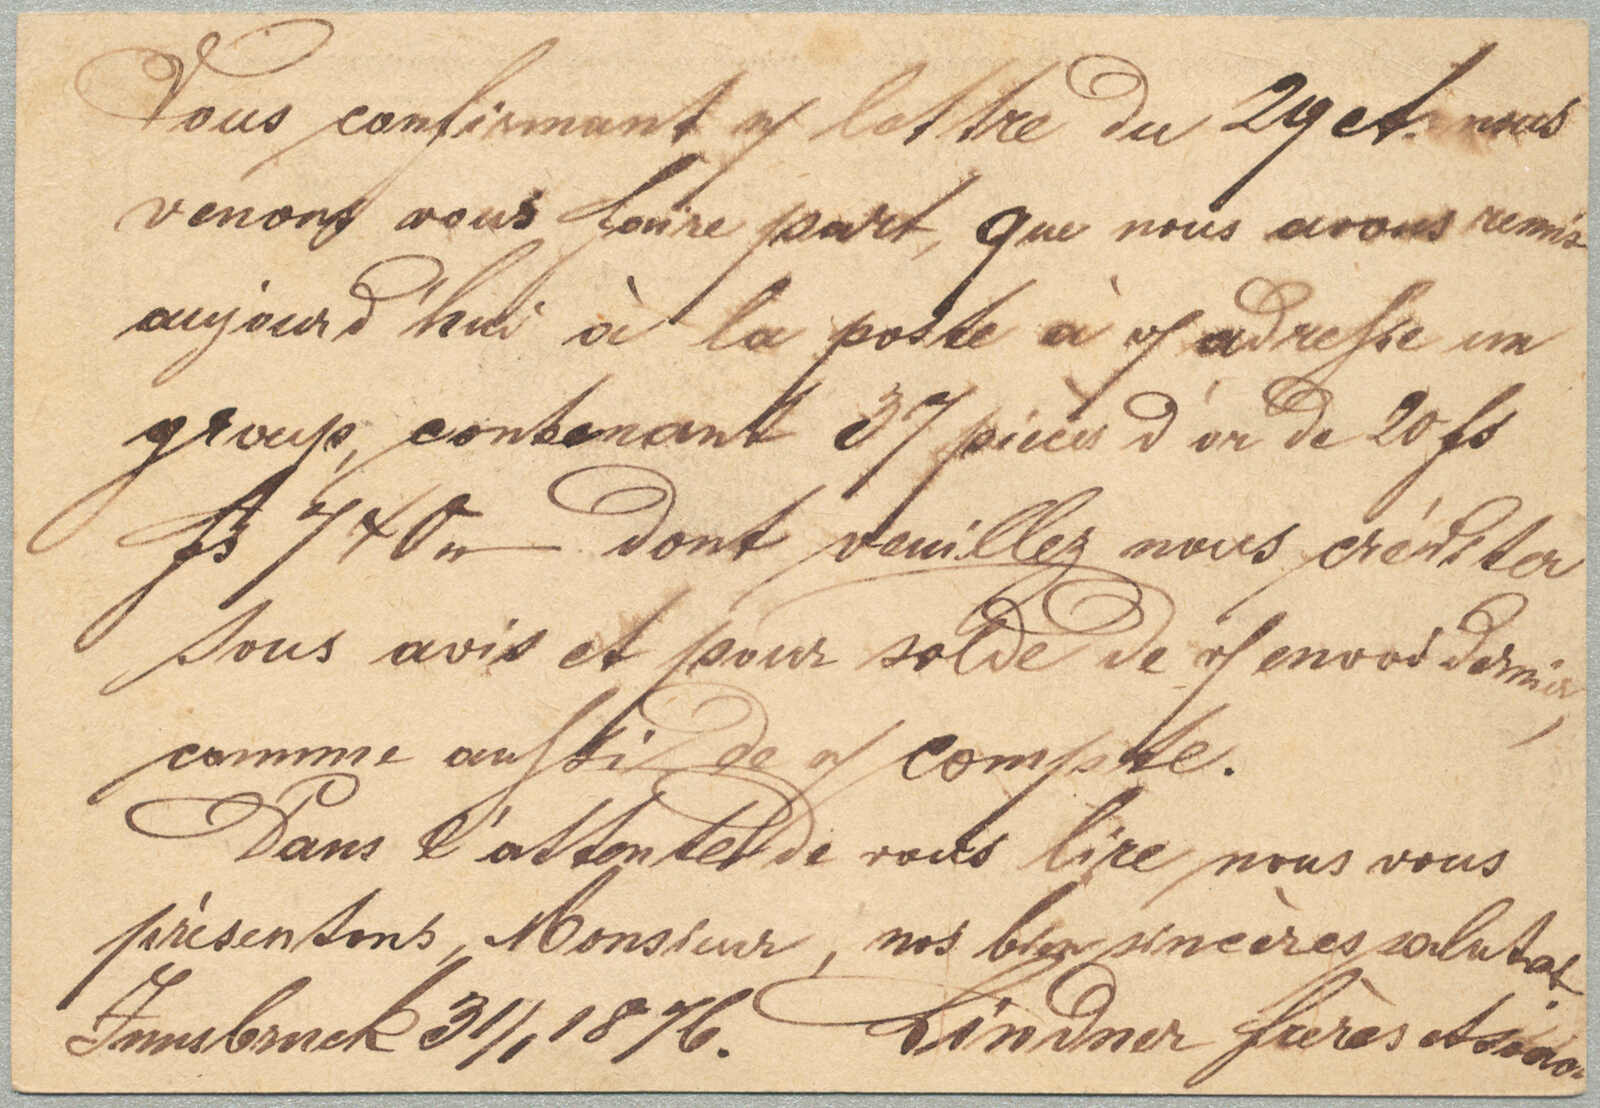 Vous confirmant n/ lettre du 29 ct. nous
venons vous faire part, que nous avons remis
aujourd'hui à la poste à v/ adresse un
group, contenant 37 pièces d'or de 20 fs
fs 740 dont veuillez nous créditer
sous avis et pour solde de v/ envoi dernier,
comme aussi de n/ compte.
Dans l'attente de vous lire nous vous
présentons, Monsieur, nos bien sincères salutat.
Innsbruck 31/1 1876. Lindner frères et